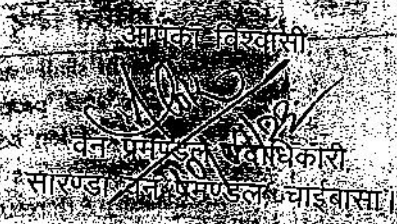 आपका विश्वासी
वन प्रमण्डल पदाधिकारी
सारण्डा वन प्रमण्डल चाईबासा।